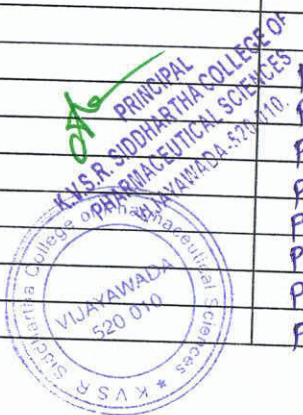 PRINCIPAL
K.V.S.R. SIDDHARTHA COLLEGE OF
PHARMACEUTICAL SCIENCES
VIJAYAWADA-520 010.
K V S R Siddhartha College of Pharmaceutical Sciences *
VIJAYAWADA
520 010
P
P
P
P
P
P